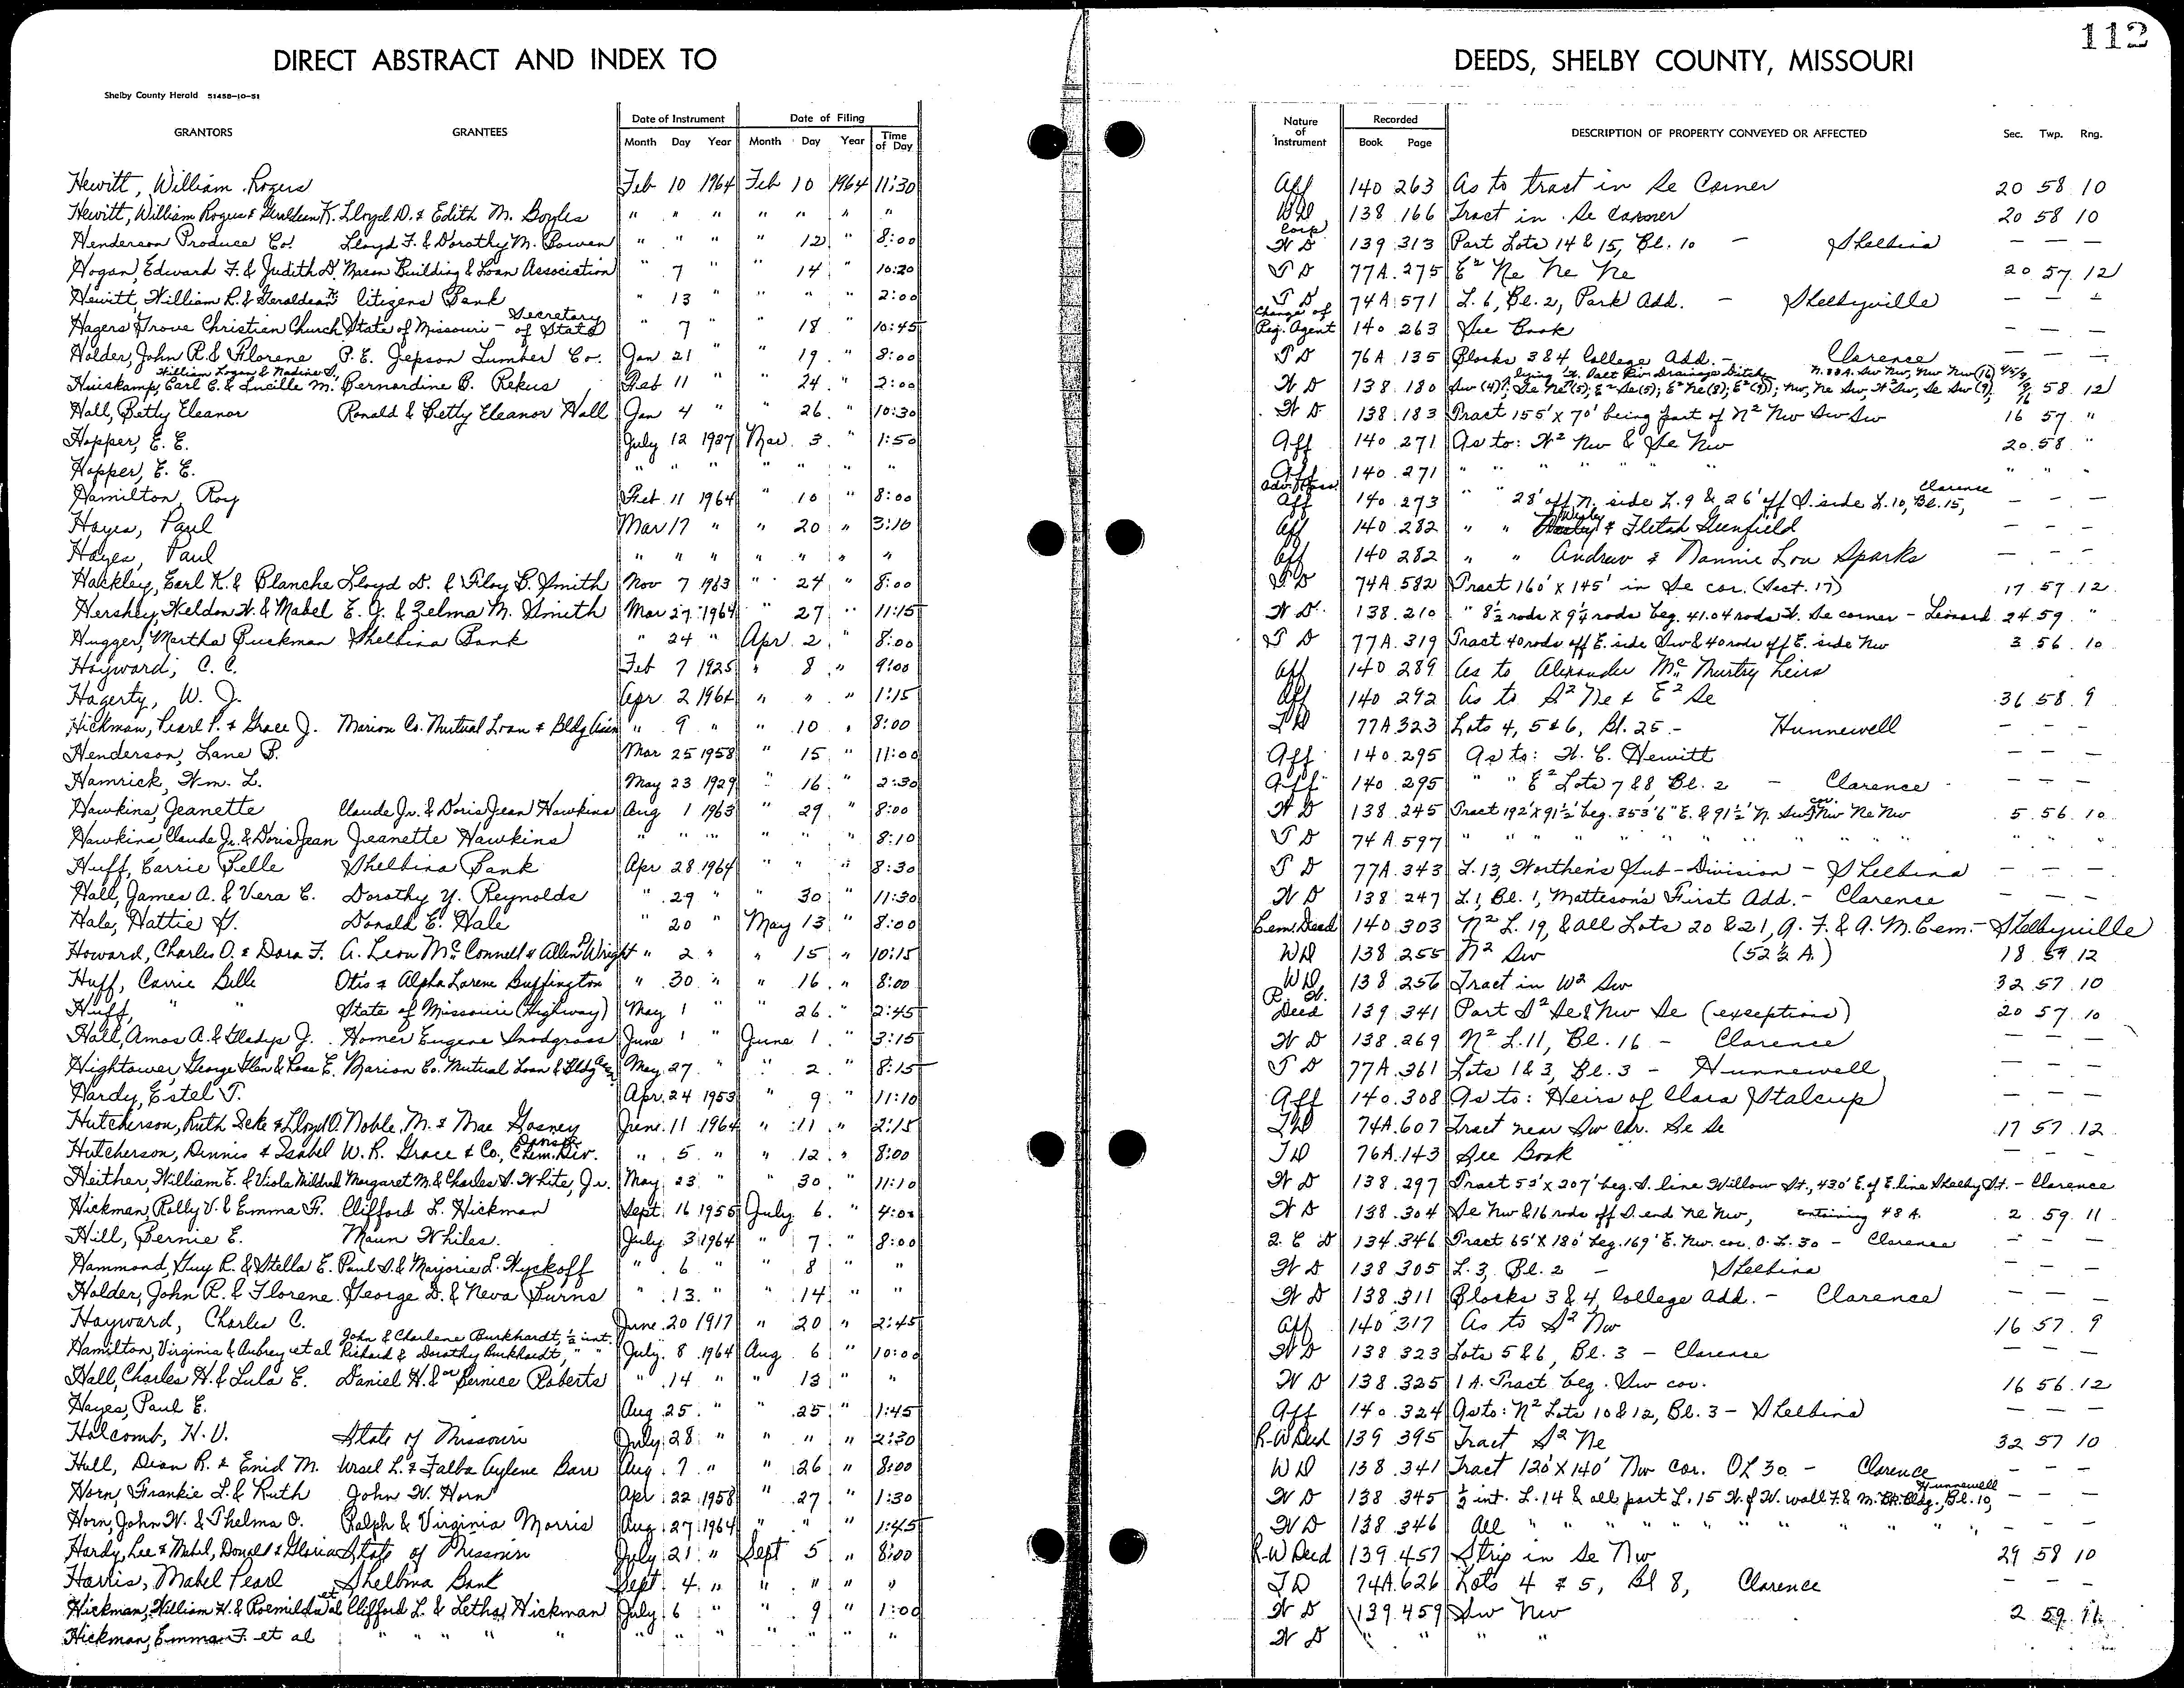 112
DIRECT ABSTRACT AND INDEX TO DEEDS, SHELBY COUNTY, MISSOURI
Shelby County Herald 51458-10-51
GRANTORS GRANTEES Date of Instrument Month Day Year Date of Filing Month Day Year Time of Day Nature of Instrument Recorded Book Page DESCRIPTION OF PROPERTY CONVEYED OR AFFECTED Sec. Twp. Rng.
Hewitt, William Rogers Feb 10 1964 Feb 10 1964 11:30 Aff 140 263 As to tract in Se Corner 20 58 10
Hewitt, William Rogers & Geraldean K. Lloyd D. & Edith M. Boyles " " " " " " " WD 138 166 Tract in Se Corner 20 58 10
Henderson Produce Co. Lloyd F. & Dorothy M. Bowen " " " " 12 " 8:00 Corp WD 139 313 Part Lots 14 & 15, Bl. 10 - Shelbina — — —
Hogan, Edward F. & Judith D. Macon Building & Loan Association " 7 " " 14 " 10:20 TD 77A 275 E² Ne Ne Ne 20 57 12
Hewitt, William R. & Geraldean K. Citizens Bank " 13 " " " " 2:00 TD 74A 571 L. 6, Bl. 2, Park Add. - Shelbyville — — —
Hagers Grove Christian Church State of Missouri - Secretary of State " 7 " " 18 " 10:45 Change of Reg. Agent 140 263 See Book — — —
Holder, John R. & Florene P. E. Jepson Lumber Co. Jan 21 " " 19 " 8:00 TD 76A 135 Blocks 3 & 4 College Add. - Clarence — — —
William Logan & Nadine S.
Huiskamp, Earl C. & Lucille M. Bernardine B. Rekus Feb 11 " " 24 " 2:00 WD 138 180 58 12
Hall, Betty Eleanor Ronald & Betty Eleanor Hall Jan 4 " " 26 " 10:30 WD 138 183 Tract 155' x 70' being part of N² Nw Sw Sw 16 57 "
Hopper, E. E. July 12 1937 Mar 3 " 1:50 Aff 140 271 As to: W² Nw & Se Nw 20 58 "
Hopper, E. E. " " " " " " " Aff Adv. Poss. 140 271 " " " " " " " " " "
Hamilton, Roy Feb 11 1964 " 10 " 8:00 Aff 140 273 " " 28' off N. side L. 9 & 26' off S. side L. 10, Bl. 15, Clarence — — —
Hayes, Paul Mar 17 " " 20 " 3:10 Aff 140 282 " " Wesley & Fletah Greenfield — — —
Hayes, Paul " " " " " " " Aff 140 282 " " Andrew & Nannie Lou Sparks — — —
Hackley, Earl K. & Blanche Lloyd D. & Floy B. Smith Nov 7 1963 " 24 " 8:00 TD 74A 582 Tract 160' x 145' in Se cor. (Sect. 17) 17 57 12
Hershey, Weldon W. & Mabel E. J. & Zelma M. Smith Mar 27 1964 " 27 " 11:15 WD 138 210 " 8½ rods x 9¼ rods beg. 41.04 rods W. Se corner - Leonard 24 59 "
Hugger, Martha Buckman Shelbina Bank " 24 " Apr 2 " 8:00 TD 77A 319 Tract 40 rods off E. side Sw & 40 rods off E. side Nw 3 56 10
Hayward, C. C. Feb 7 1925 " 8 " 9:00 Aff 140 289 As to Alexander McMurtry heirs
Hagerty, W. J. Apr 2 1964 " " " 1:15 Aff 140 292 As to S² Ne & E² Se 36 58 9
Hickman, Pearl P. & Grace J. Marion Co. Mutual Loan & Bldg Assn " 9 " " 10 " 8:00 TD 77A 323 Lots 4, 5 & 6, Bl. 25 - Hunnewell — — —
Henderson, Lane B. Mar 25 1958 " 15 " 11:00 Aff 140 295 As to: W. C. Hewitt — — —
Hamrick, Wm. L. May 23 1929 " 16 " 2:30 Aff 140 295 " " E² Lots 7 & 8 Bl. 2 - Clarence — — —
Hawkins, Jeanette Claude Jr. & Doris Jean Hawkins Aug 1 1963 " 29 " 8:00 WD 138 245 Tract 192' x 91½' beg. 353'6" E. & 91½' N. Sw cor Nw Ne Nw 5 56 10
Hawkins, Claude Jr. & Doris Jean Jeanette Hawkins " " " " " " 8:10 TD 74A 597 " " " " " " " " " "
Huff, Carrie Belle Shelbina Bank Apr 28 1964 " " " 8:30 TD 77A 343 L. 13, Worthen's Sub-Division - Shelbina — — —
Hall, James A. & Vera C. Dorothy Y. Reynolds " 29 " " 30 " 11:30 WD 138 247 L. 1, Bl. 1, Matteson's First Add. - Clarence — — —
Hale, Hattie G. Donald E. Hale " 20 " May 13 " 8:00 Cem Deed 140 303 N² L. 19, & all Lots 20 & 21, A. F. & A. M. Cem. - Shelbyville
Howard, Charles O. & Dora F. A. Leon McConnell & Allen P. Wright " 2 " " 15 " 10:15 WD 138 255 N² Sw (52½ A.) 18 59 12
Huff, Carrie Belle Otis & Alpha Larene Buffington " 30 " " 16 " 8:00 WD 138 256 Tract in W² Sw 32 57 10
Huff, " " State of Missouri (Highway) May 1 " " 26 " 2:45 R. W. Deed 139 341 Part S² Se & Nw Se (exceptions) 20 57 10
Hall, Amos A. & Gladys J. Homer Eugene Snodgrass June 1 " June 1 " 3:15 WD 138 269 N² L. 11, Bl. 16 - Clarence — — —
Hightower, George Glen & Rosa E. Marion Co. Mutual Loan & Bldg Assn May 27 " " 2 " 8:15 TD 77A 361 Lots 1 & 3, Bl. 3 - Hunnewell — — —
Hardy, Estel T. Apr 24 1953 " 9 " 11:10 Aff 140 308 As to: Heirs of Clara Stalcup — — —
Hutcherson, Ruth Deke & Lloyd O. Noble M. & Mae Gosney June 11 1964 " 11 " 2:15 TD 74A 607 Tract near Sw Cor. Se Se 17 57 12
Hutcherson, Dennis & Isabel W. R. Grace & Co., Chem. Div. " 5 " " 12 " 8:00 TD 76A 143 See Book — — —
Heither, William E. & Viola Mildred Margaret M. & Charles S. White, Jr. May 23 " " 30 " 11:10 WD 138 297 Tract 53' x 207' beg. S. line Willow St., 430' E. of E. line Shelby St. - Clarence
Hickman, Rolly V. & Emma F. Clifford L. Hickman Sept 16 1955 July 6 " 4:00 WD 138 304 Se Nw & 16 rods off S. end Ne Nw, containing 48 A. 2 59 11
Hill, Bernie E. Maun Whiles July 3 1964 " 7 " 8:00 Q C D 134 346 Tract 65' x 180' beg. 169' E. Nw. cor. O. L. 30 - Clarence — — —
Hammond, Guy R. & Stella E. Paul S. & Marjorie L. Wyckoff " 6 " " 8 " " WD 138 305 L. 3, Bl. 2 - Shelbina — — —
Holder, John R. & Florene George D. & Neva Burns " 13 " " 14 " " WD 138 311 Blocks 3 & 4, College Add. - Clarence — — —
Hayward, Charles C. June 20 1917 " 20 " 2:45 Aff 140 317 As to S² Nw 16 57 9
Hamilton, Virginia & Aubrey et al John & Charlene Burkhardt, ½ int. Richard & Dorothy Burkhardt, " " July 8 1964 Aug 6 " 10:00 WD 138 323 Lots 5 & 6, Bl. 3 - Clarence — — —
Hall, Charles H. & Lula E. Daniel H. & or Bernice Roberts " 14 " " 13 " " WD 138 325 1 A. Tract beg. Sw cor. 16 56 12
Hayes, Paul E. Aug 25 " " 25 " 1:45 Aff 140 324 As to: N² Lots 10 & 12, Bl. 3 - Shelbina — — —
Holcomb, H. V. State of Missouri July 28 " " " " 2:30 R-W Deed 139 395 Tract S² Ne 32 57 10
Hull, Dean R. & Enid M. Ursel L. & Falba Aylene Barr Aug 7 " " 26 " 8:00 WD 138 341 Tract 120' x 140' Nw cor. OL 30 - Clarence — — —
Horn, Frankie L. & Ruth John W. Horn Apr 22 1958 " 27 " 1:30 WD 138 345 ½ int. L. 14 & all part L. 15 W. of W. wall F. & M. Bk. Bldg., Bl. 10, Hunnewell — — —
Horn, John W. & Thelma O. Ralph & Virginia Morris Aug 27 1964 " " " 1:45 WD 138 346 All " " " " " " " " " " — — —
Hardy, Lee & Mabel, Donald & Gloria State of Missouri July 21 " Sept 5 " 8:00 R-W Deed 139 457 Strip in Se Nw 29 58 10
Harris, Mabel Pearl Shelbina Bank Sept 4 " " " " " TD 74A 626 Lots 4 & 5, Bl 8, Clarence — — —
Hickman, William H. & Roemilda et al Clifford L. & Letha Hickman July 6 " " 9 " 1:00 WD 139 459 Sw Nw 2 59 11
Hickman, Emma F. et al " " " " " " " " " " " " WD " " " "